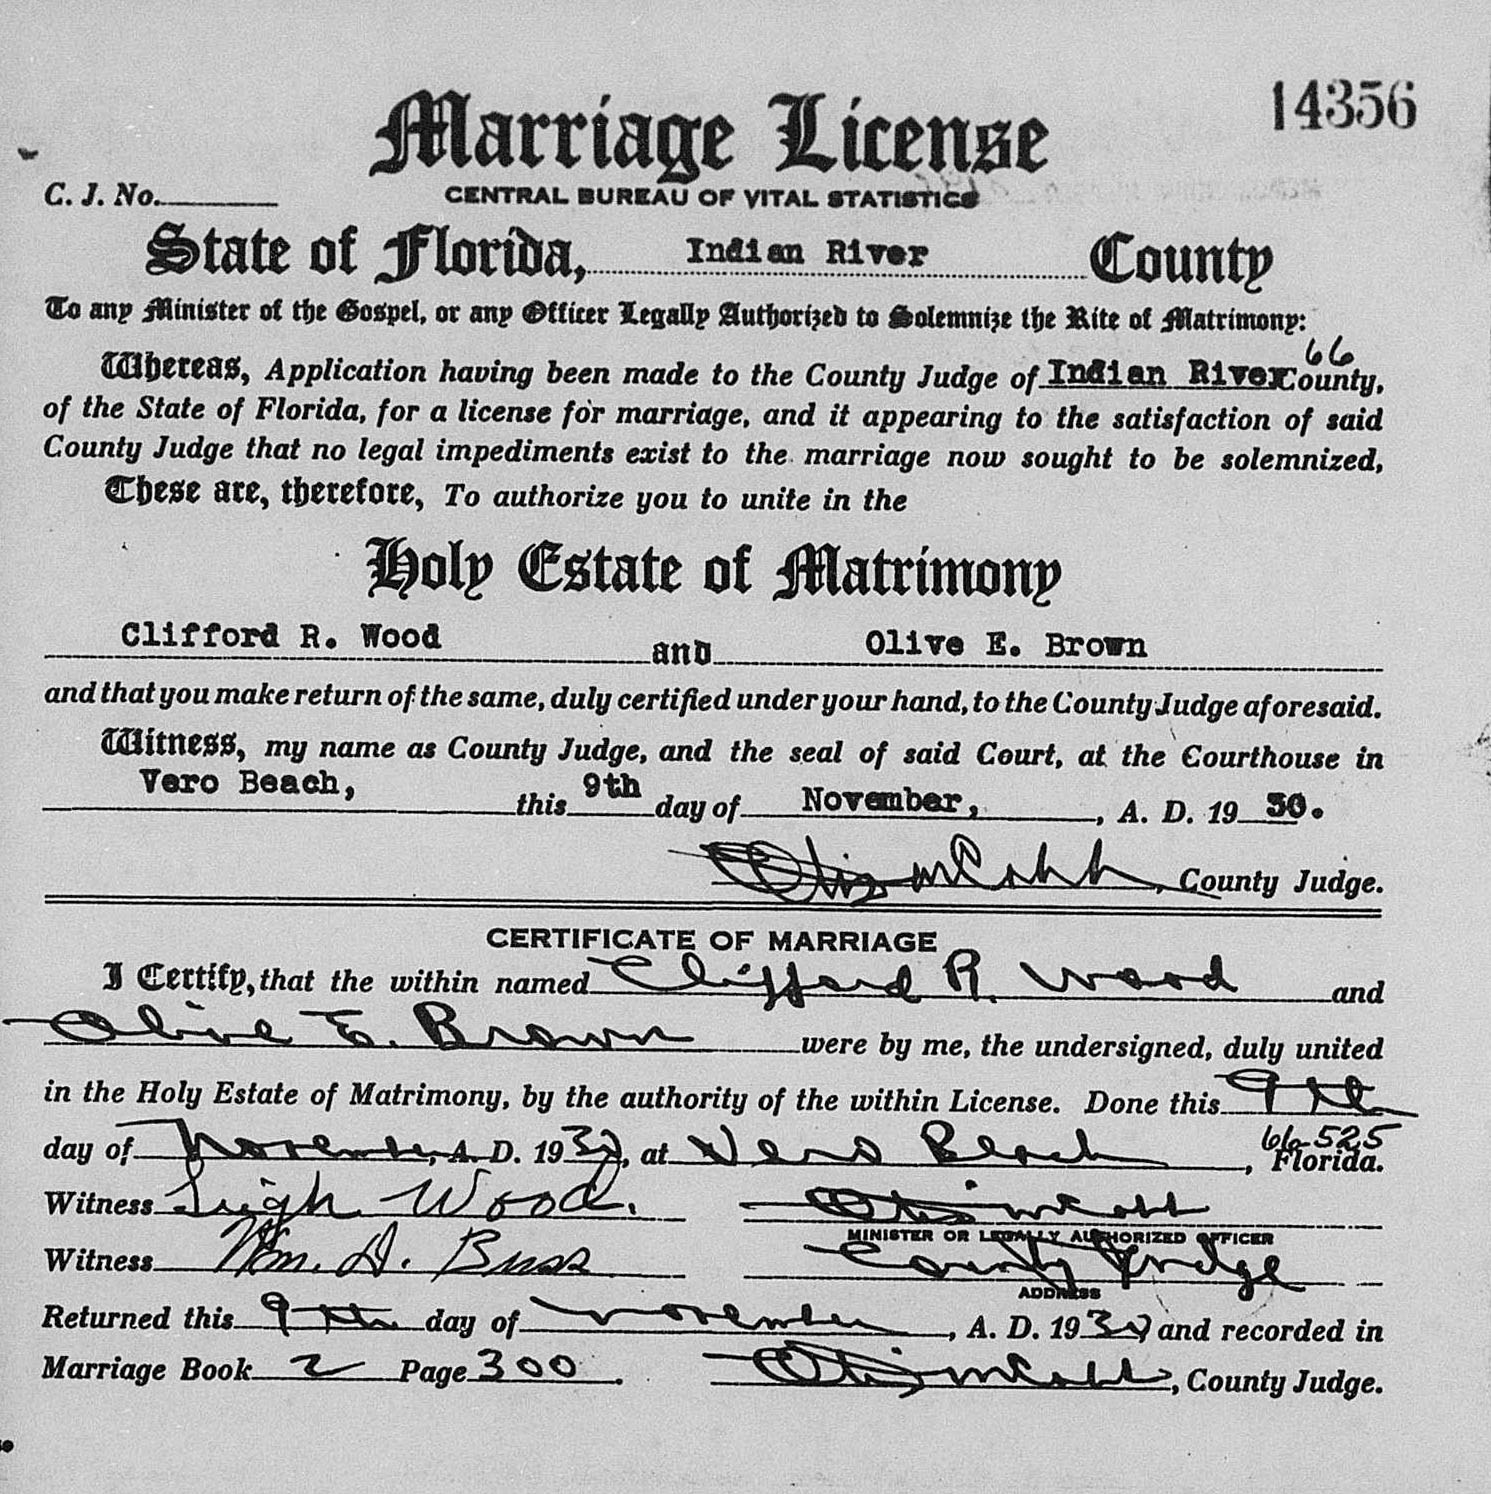 14356
Marriage License
C. J. No.
CENTRAL BUREAU OF VITAL STATISTICS
State of Florida, Indian River County
To any Minister of the Gospel, or any Officer Legally Authorized to Solemnize the Rite of Matrimony:
66
Whereas, Application having been made to the County Judge of Indian River County,
of the State of Florida, for a license for marriage, and it appearing to the satisfaction of said
County Judge that no legal impediments exist to the marriage now sought to be solemnized,
These are, therefore, To authorize you to unite in the
Holy Estate of Matrimony
Clifford R. Wood and Olive E. Brown
and that you make return of the same, duly certified under your hand, to the County Judge aforesaid.
Witness, my name as County Judge, and the seal of said Court, at the Courthouse in
Vero Beach, this 9th day of November, , A. D. 19 30.
Otis M Cobb, County Judge.
CERTIFICATE OF MARRIAGE
I Certify, that the within named Clifford R. Wood and
Olive E. Brown were by me, the undersigned, duly united
in the Holy Estate of Matrimony, by the authority of the within License. Done this 9th
66-525
day of November, A. D. 1930, at Vero Beach, Florida.
Witness Leigh Wood. Otis M Cobb
MINISTER OR LEGALLY AUTHORIZED OFFICER
Witness Wm. H. Buss County Judge
ADDRESS
Returned this 9th day of November, A. D. 1930 and recorded in
Marriage Book 2 Page 300. Otis M Cobb, County Judge.